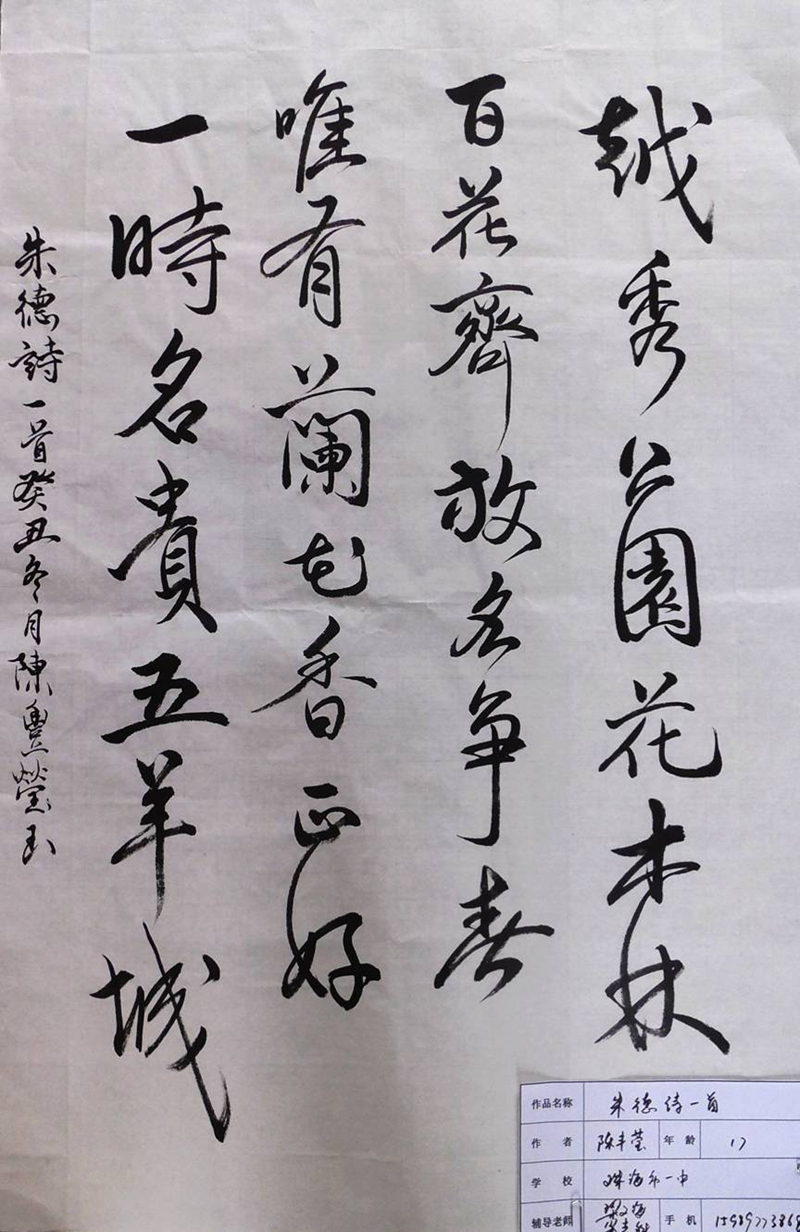 越秀公園花木林
百花齊放各争春
唯有蘭花香正好
一時名貴五羊城
朱德詩一首癸丑冬月陳豐瑩玉
作品名称 朱德诗一首
作 者 陈丰莹 年 龄 17
学 校 珠海市一中
辅导老师 手 机